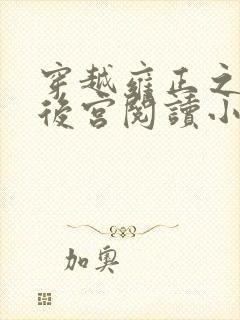 穿越雍正之
後宮閱讀小
加奧